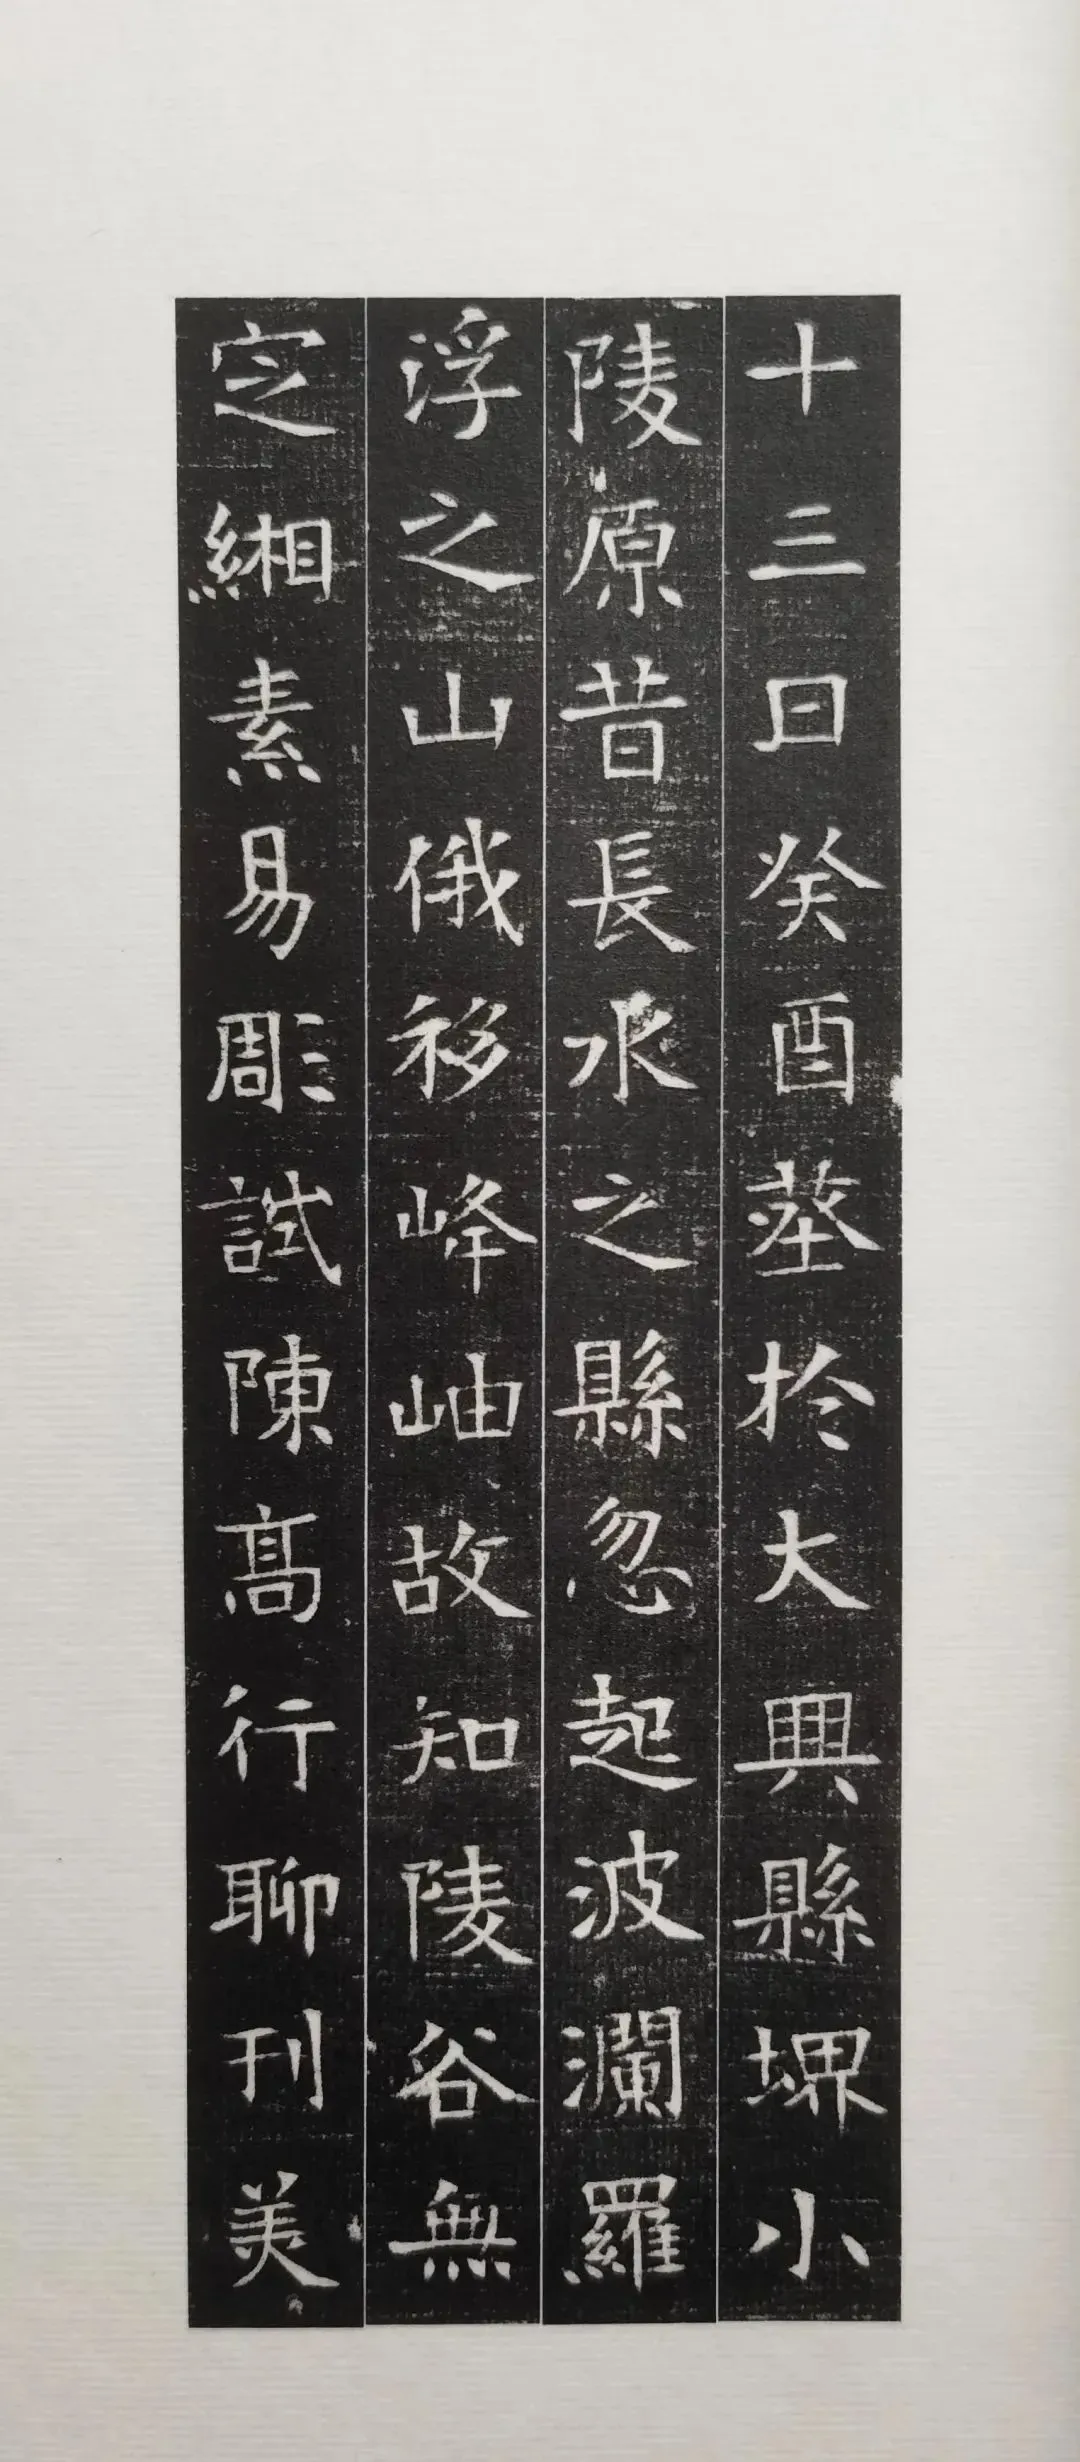 十三日癸酉塟扵大興縣堺小
陵原昔長水之縣忽起波瀾羅
浮之山俄移峰岫故知陵谷無
定緗素易彫試陳髙行聊刊美